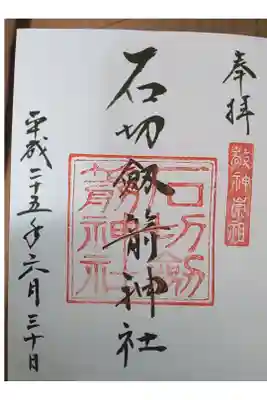 奉拝
敬神崇祖
石切劔箭神社
石切劔
箭神社
平成二十五年六月三十日